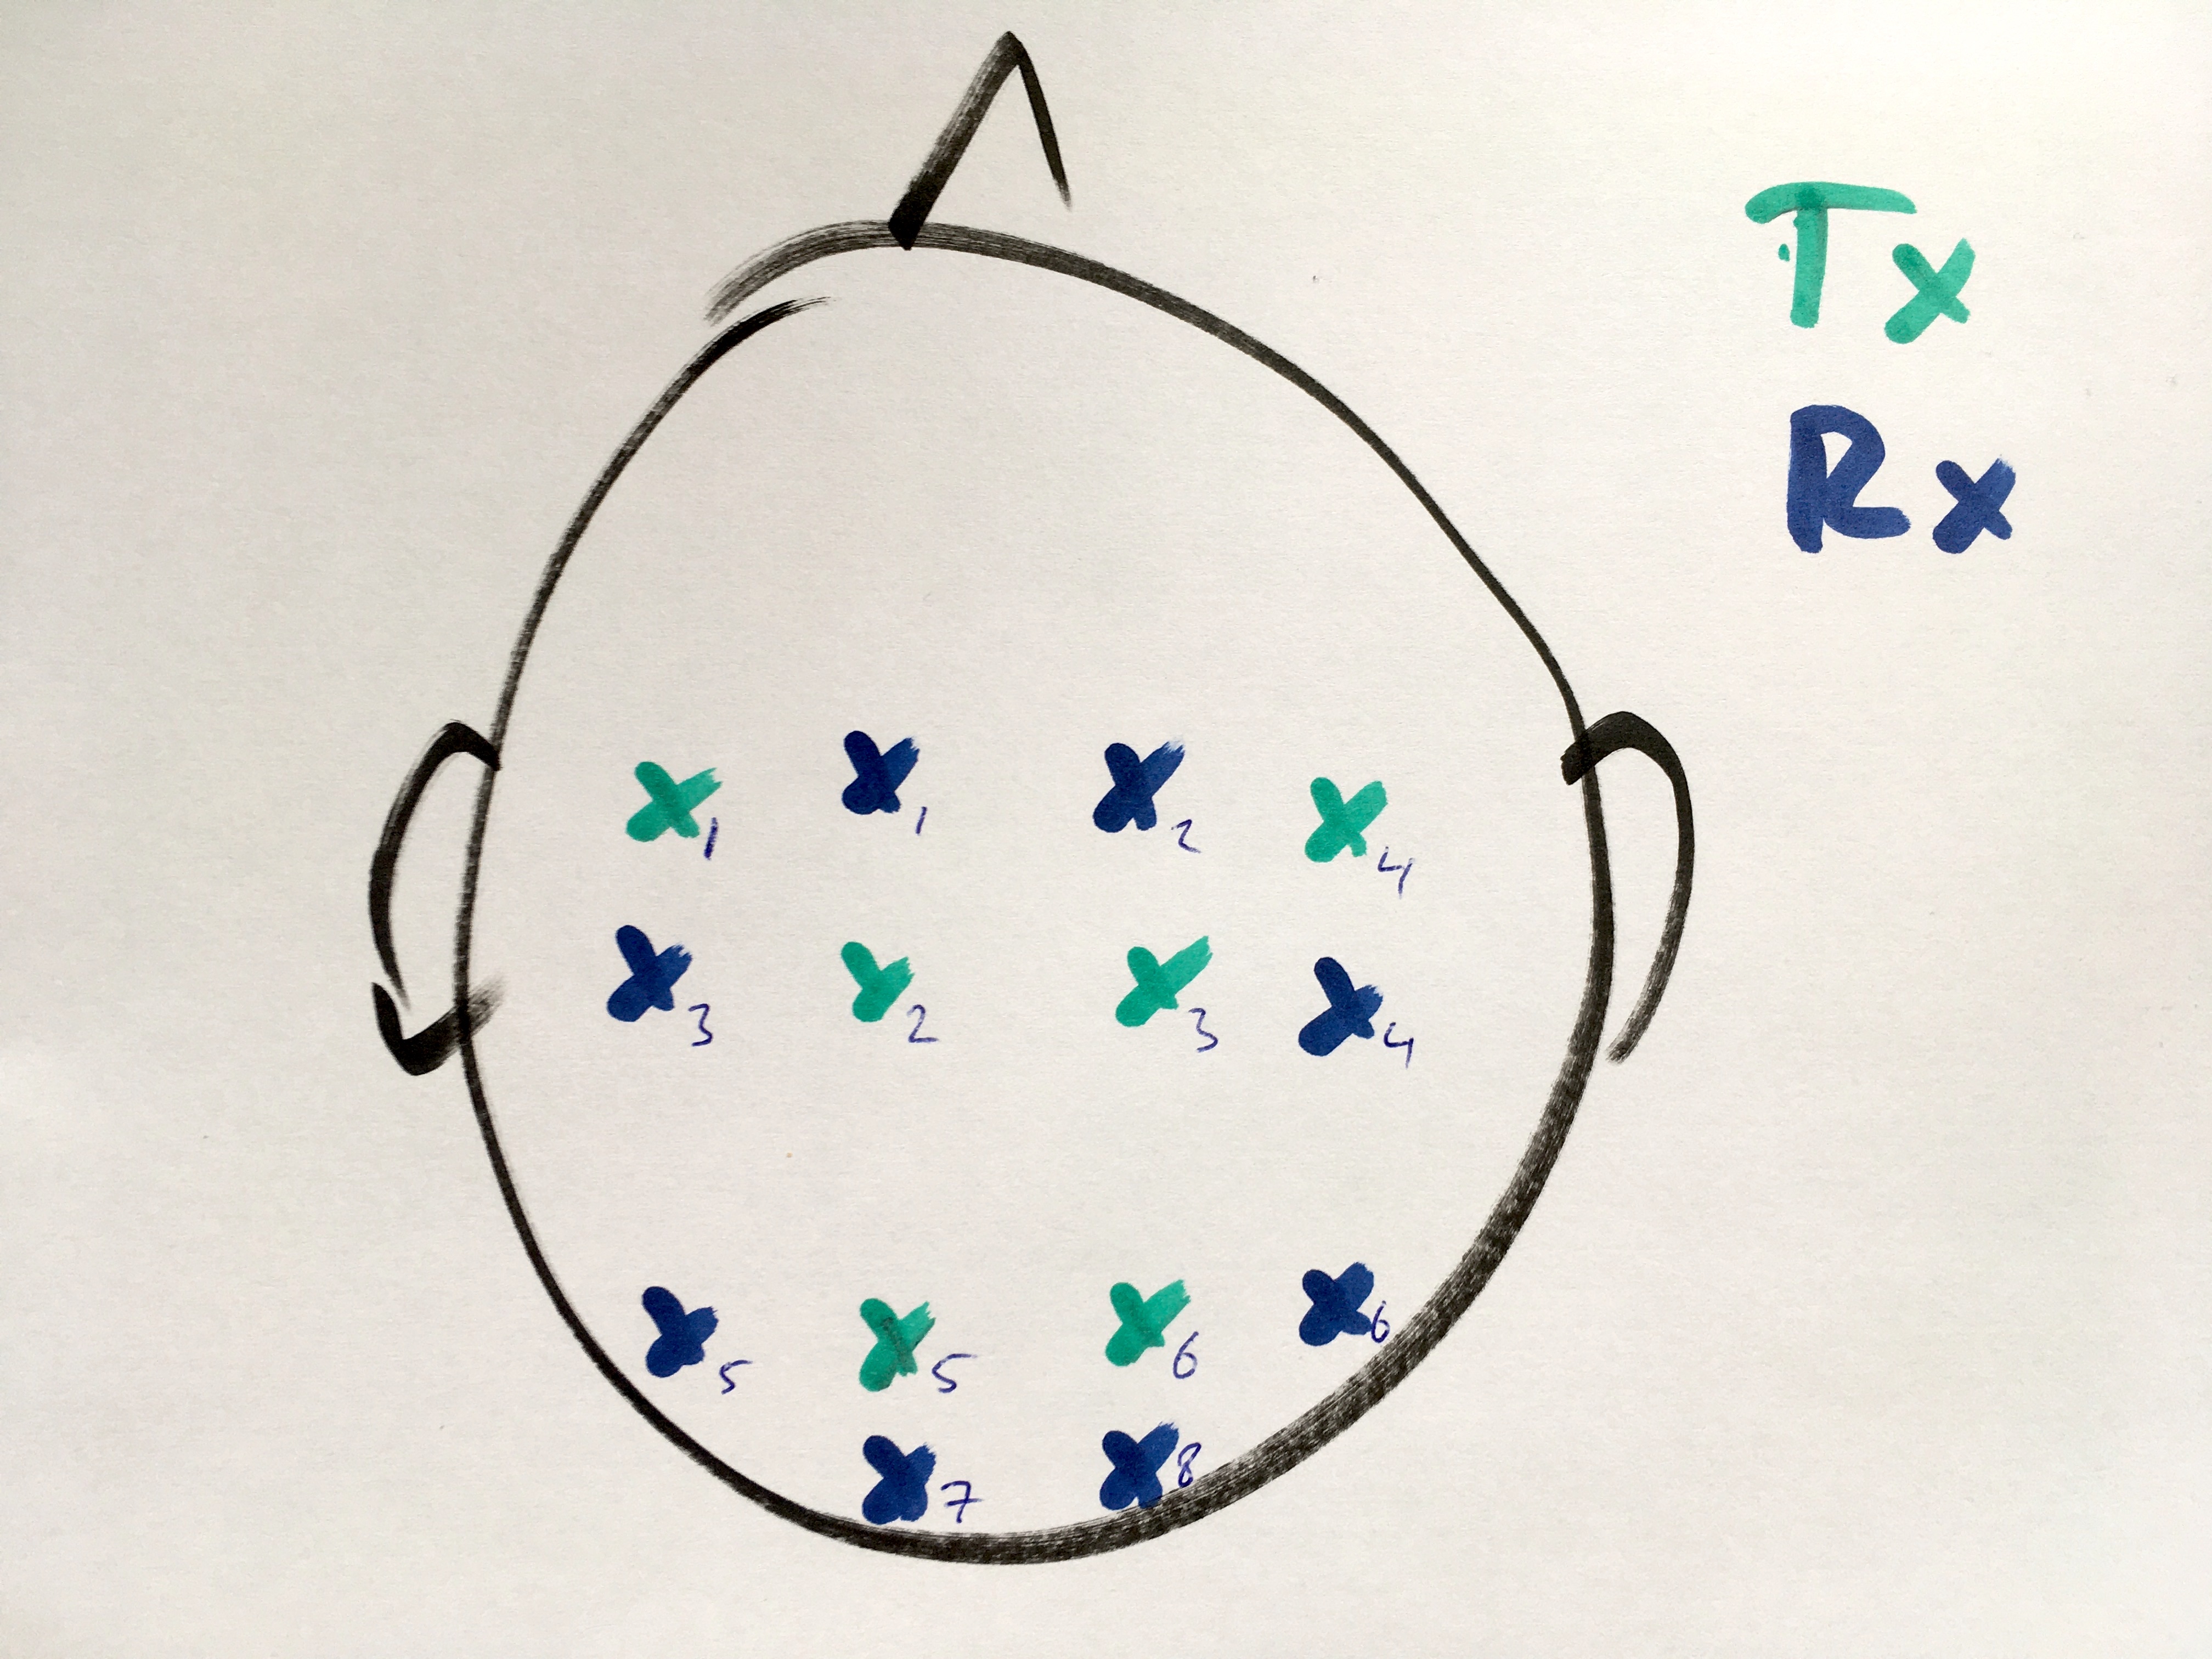 Tx
Rx
x1 x1 x2 x4
x3 x2 x3 x4
x5 x5 x6 x6
x7 x8